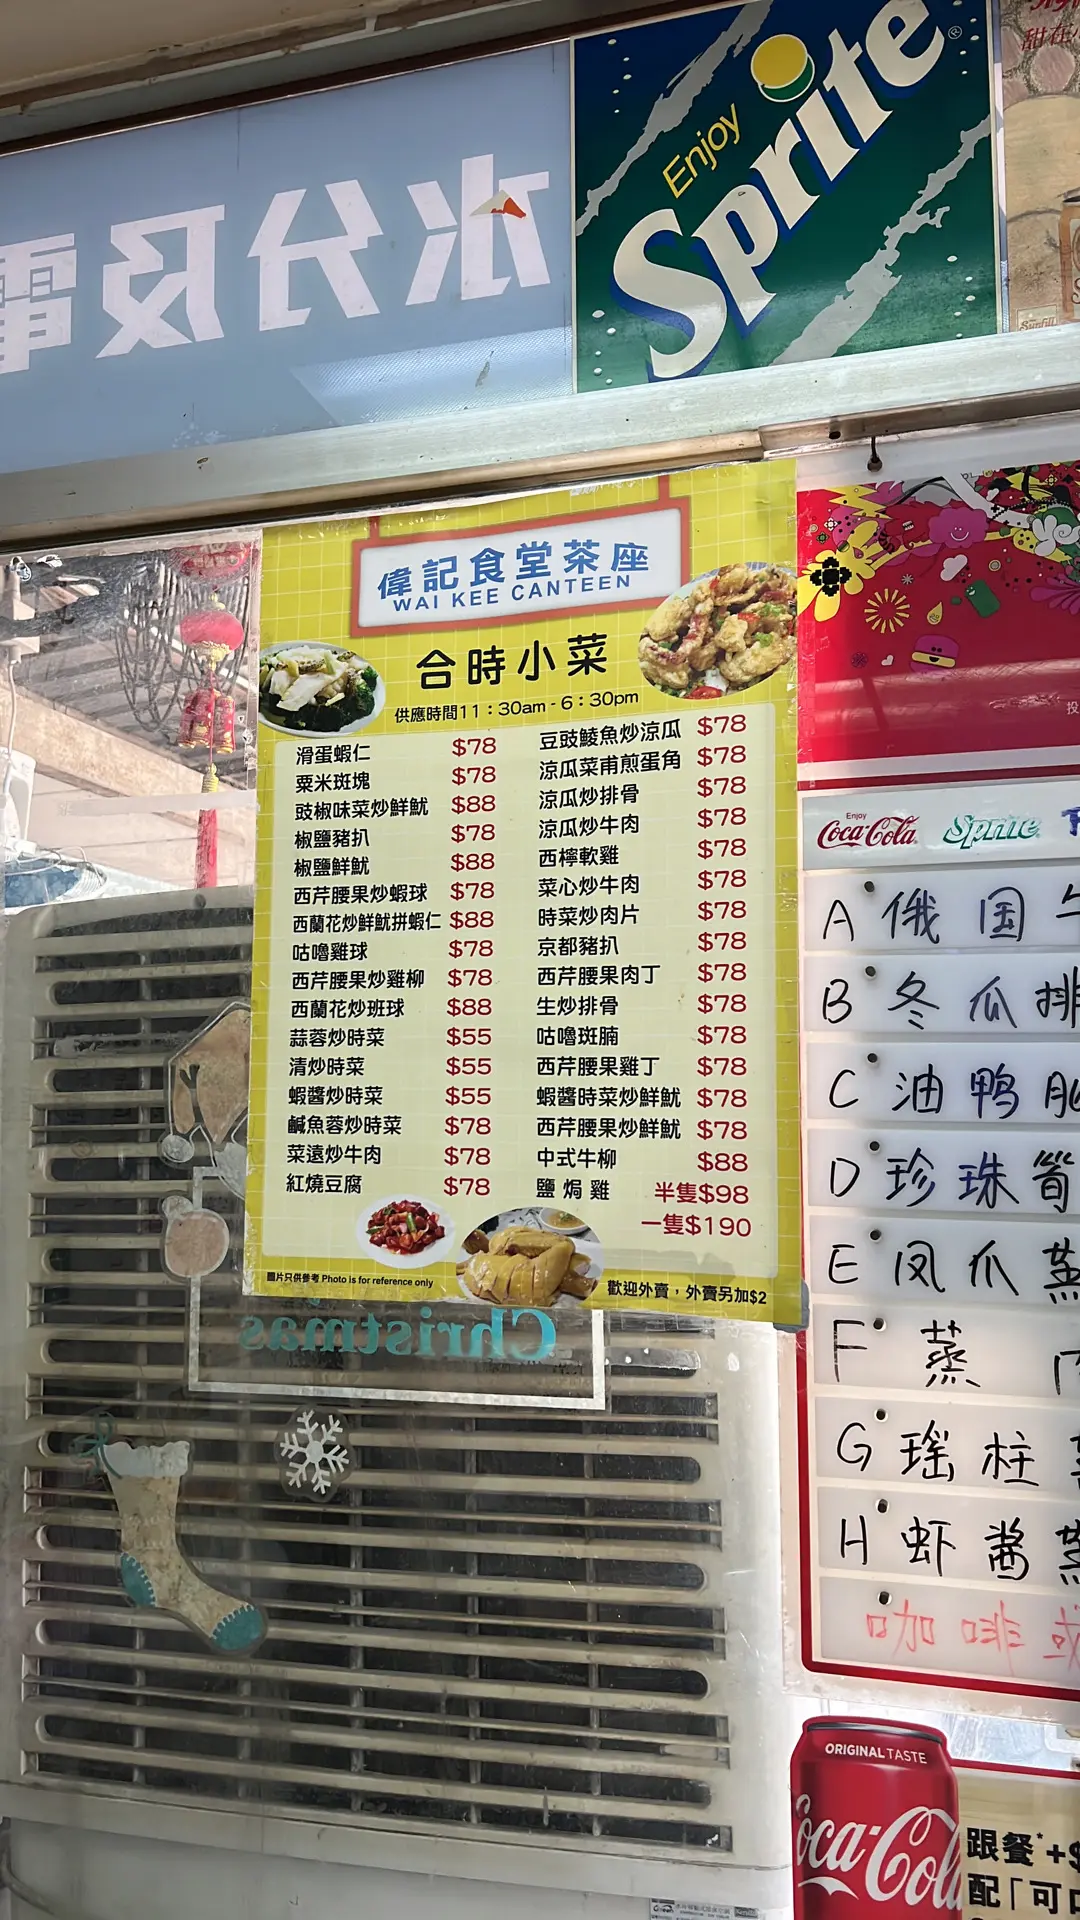 水分及電
Enjoy
Sprite
甜在
Sunfill
偉記食堂茶座
WAI KEE CANTEEN
合時小菜
供應時間11：30am - 6：30pm
滑蛋蝦仁 $78
粟米斑塊 $78
豉椒味菜炒鮮魷 $88
椒鹽豬扒 $78
椒鹽鮮魷 $88
西芹腰果炒蝦球 $78
西蘭花炒鮮魷拼蝦仁 $88
咕嚕雞球 $78
西芹腰果炒雞柳 $78
西蘭花炒班球 $88
蒜蓉炒時菜 $55
清炒時菜 $55
蝦醬炒時菜 $55
鹹魚蓉炒時菜 $78
菜遠炒牛肉 $78
紅燒豆腐 $78
豆豉鯪魚炒涼瓜 $78
涼瓜菜甫煎蛋角 $78
涼瓜炒排骨 $78
涼瓜炒牛肉 $78
西檸軟雞 $78
菜心炒牛肉 $78
時菜炒肉片 $78
京都豬扒 $78
西芹腰果肉丁 $78
生炒排骨 $78
咕嚕斑腩 $78
西芹腰果雞丁 $78
蝦醬時菜炒鮮魷 $78
西芹腰果炒鮮魷 $78
中式牛柳 $88
鹽焗雞 半隻$98
一隻$190
圖片只供參考 Photo is for reference only
歡迎外賣，外賣另加$2
Christmas
投
Enjoy
Coca-Cola
Sprite
A 俄国牛
B 冬瓜排
C 油鸭
D 珍珠筍
E 凤爪蒸
F 蒸
G 瑶柱
H 虾酱蒸
咖啡或
ORIGINAL TASTE
Coca-Cola
跟餐*+$
配「可口